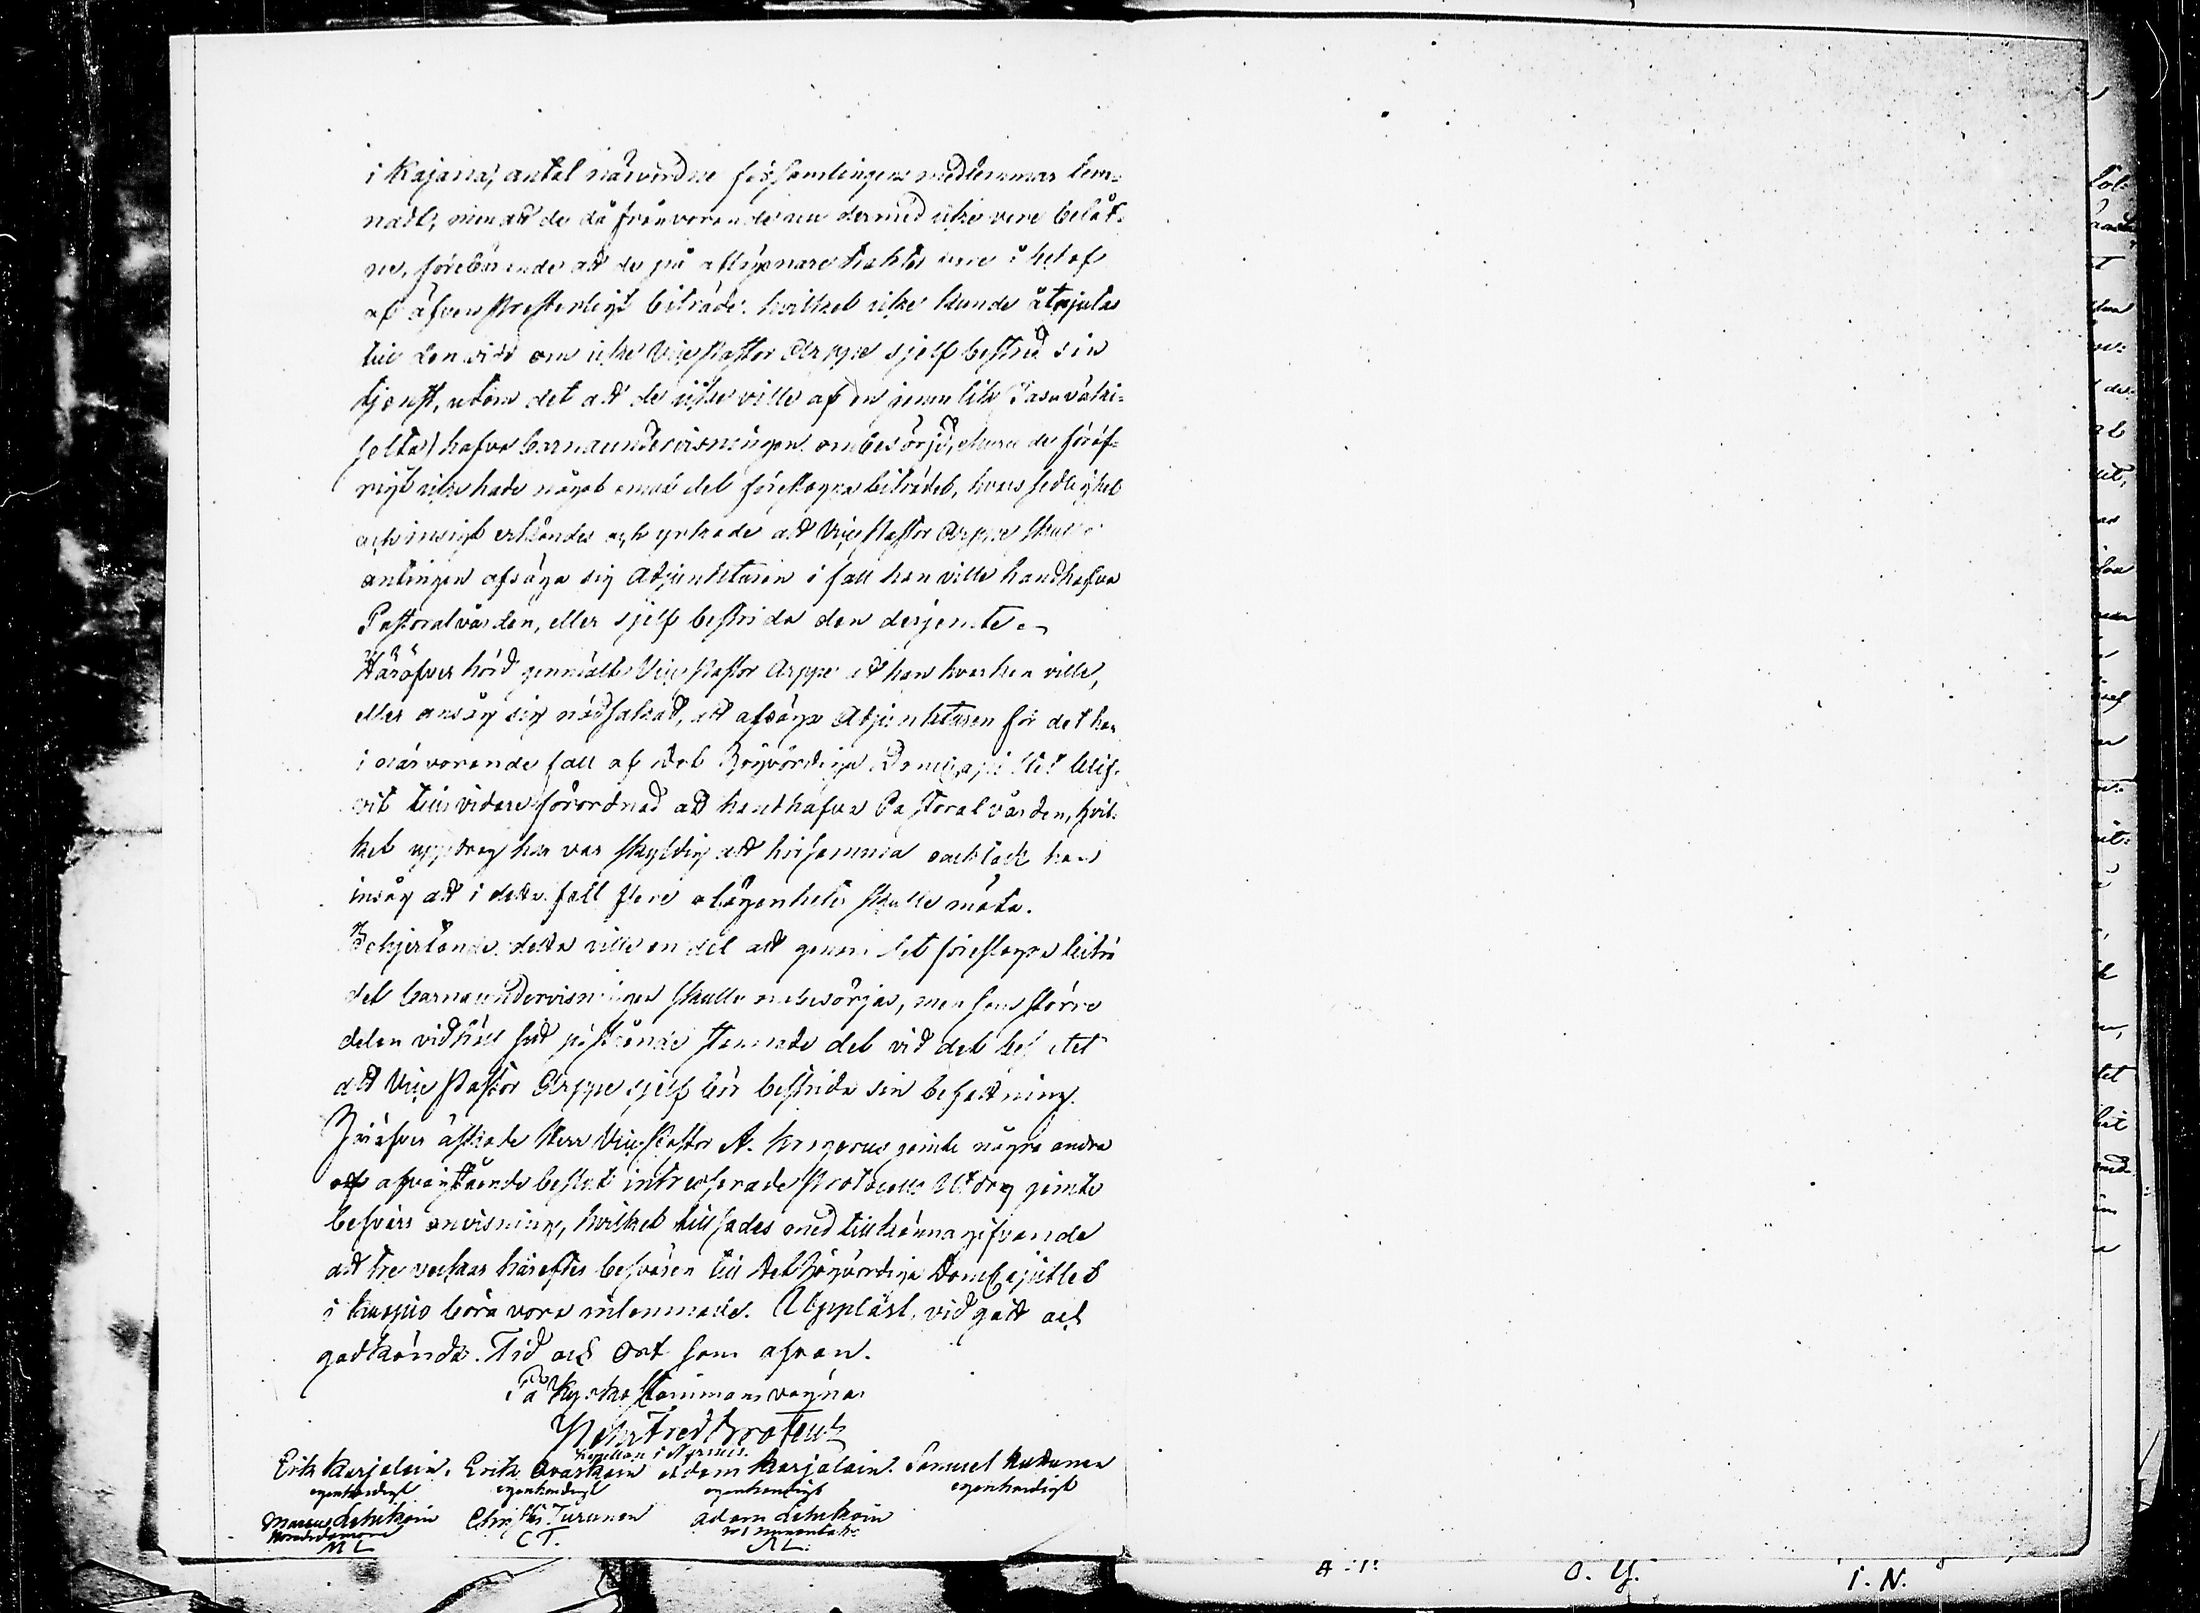 i Kajana, antal närvordne församlingens medlemmar lem-
nadt, men att de då frånvarande nu dermed icke vore belåt-
ne, förebärande att de på aflägsnare trakter vore i behof
af äfven Presterligt biträde, hvilket icke kunde åtnjutas
till den vidd om icke Vice Pastor Arppe sjelf bestred sin
tjenst, utom det att de icke ville af en
hafva barnaundervisningen ombesörjd, ehuru de föröf-
rigt icke hade något emot det föreslagna biträdet, hvars sedlighet
och insigt erkändes och yrkade att Vice Pastor Arppe skulle
antingen afsäga sig Adjunkturen i fall han ville handhafva
Pastoralvården, eller sjelf bestrida den derjemte.
Häröfver hörd genmälte Vice Pastor Arppe att han hvarken ville,
eller ansåg sig nödsakad, att afsäga Adjunkturen för det han
i närvarande fall af det Högvördiga DomCapitlet blif-
vit tills vidare förordnad att handhafva Pastoralvården, hvil-
ket uppdrag han var skyldig att hörsamma oacktadt han
insåg att i detta fall flere olägenheter skulle möta.
Behjertande detta ville en del att genom det föreslagna biträ
det barnaundervisningen skulle ombesörjas, men som större
delen vidhöll sitt påstående stannade det vid det beslutet
att Vice Pastor Arppe sjelf bör bestrida sin befattning.
Häröfver äskade Herr Vice Pastor A. jemte några andra
af ofvanstående beslut intresserade Protocolls Utdrag jemte
besvärs anvisning, hvilket tillsades med tillkännagifvande
att tre veckor härefter besvären till det Högvördiga DomCapitlet
i Kuopio böra vara inlemnade. Uppläst, vidgått och
godkändt. Tid och Ort som ofvan.
På Kyrko Stämmans vägnar
Brofeldt
Kapellan i Nurmis.
Erik Karjalain. Erik Ovaskain Adam Karjalain. Samuel
egenhändigt egenhändigt egenhändigt egenhändigt
Marcus Lehikoin Christer Turunen Adam Lehikoin
Nämndeman
M L C T. A L.
A. T. O. Y. I. N.